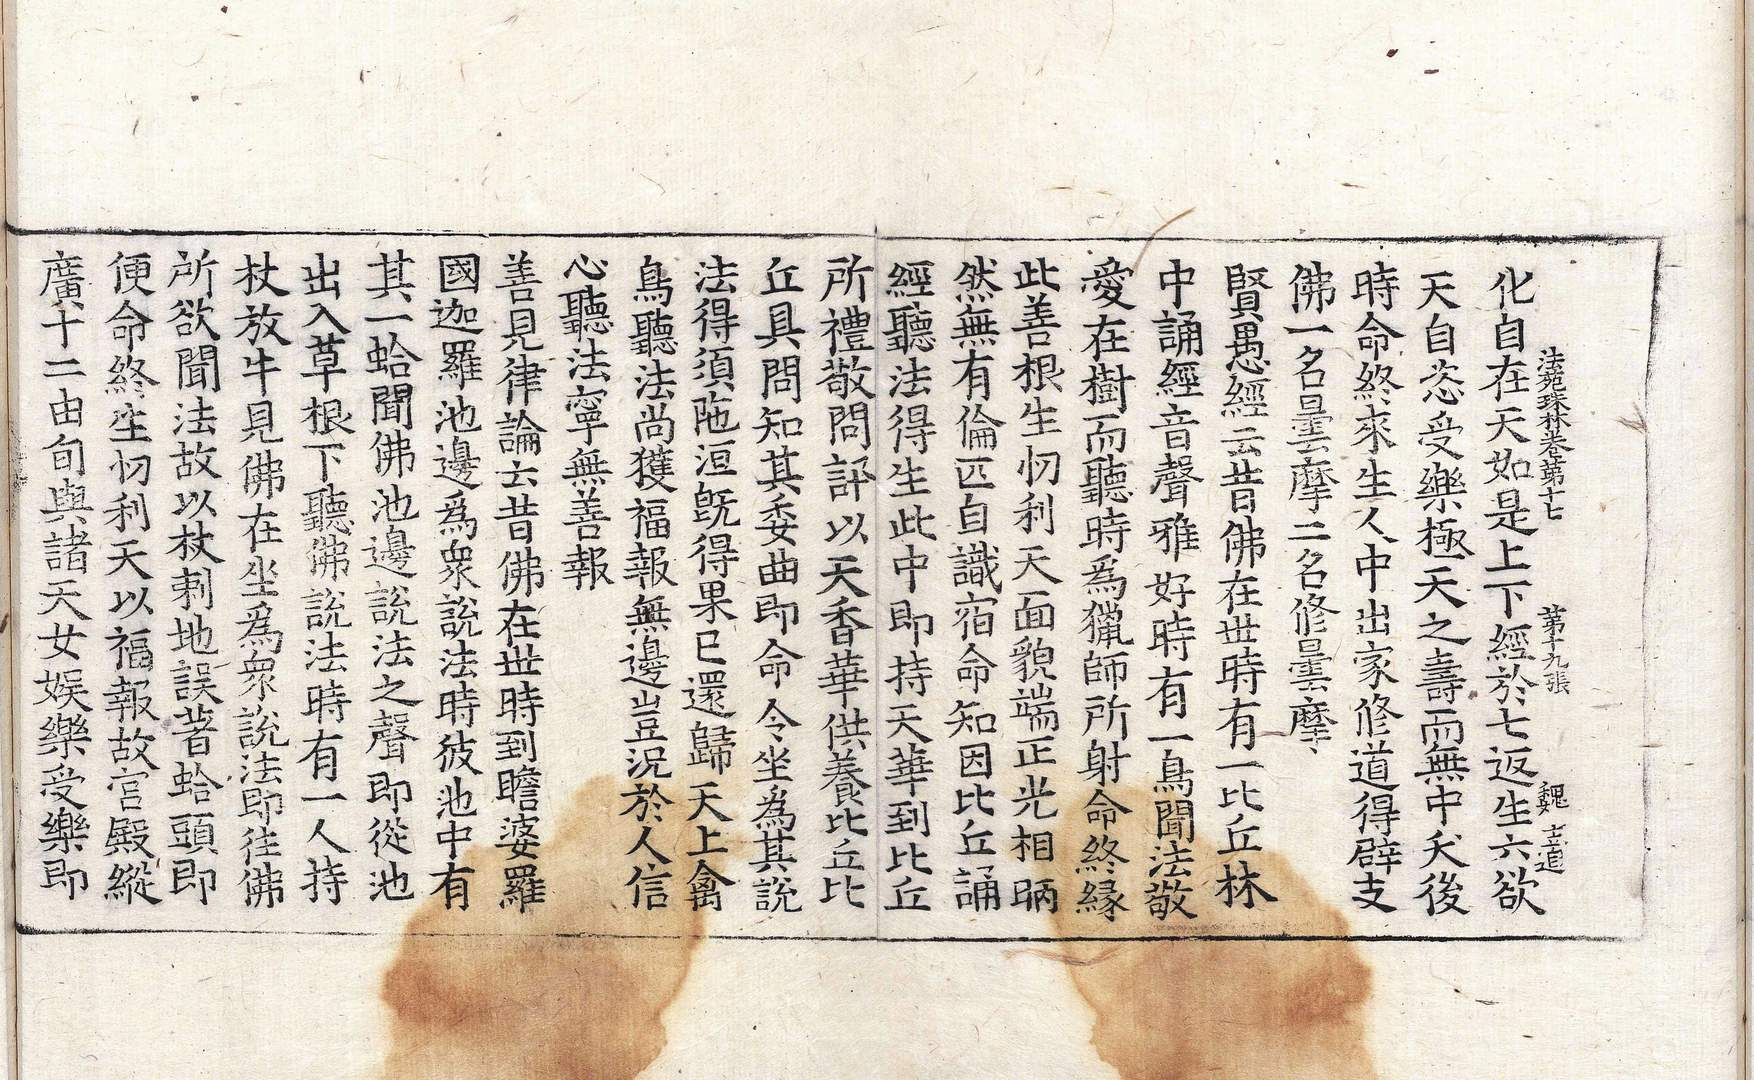 法苑珠林卷第十七 第十九張 魏 立道
化自在天如是上下經於七返生六欲
天自恣受樂極天之壽而無中夭後
時命終來生人中出家修道得辟支
佛一名曇摩二名修曇摩
賢愚經云昔佛在世時有一比丘林
中誦經音聲雅好時有一鳥聞法敬
愛在樹而聽時為獵師所射命終緣
此善根生忉利天面貌端正光相昞
然無有倫匹自識宿命知因比丘誦
經聽法得生此中即持天華到比丘
所禮敬問訊以天香華供養比丘比
丘具問知其委曲即命令坐為其說
法得須陁洹既得果已還歸天上禽
鳥聽法尚獲福報無邊豈況於人信
心聽法寧無善報
善見律論云昔佛在世時到瞻婆羅
國迦羅池邊為衆說法時彼池中有
其一蛤聞佛池邊說法之聲即從池
出入草根下聽佛說法時有一人持
杖放牛見佛在坐為衆說法即往佛
所欲聞法故以杖刺地誤著蛤頭即
便命終生忉利天以福報故宮殿縱
廣十二由旬與諸天女娛樂受樂即